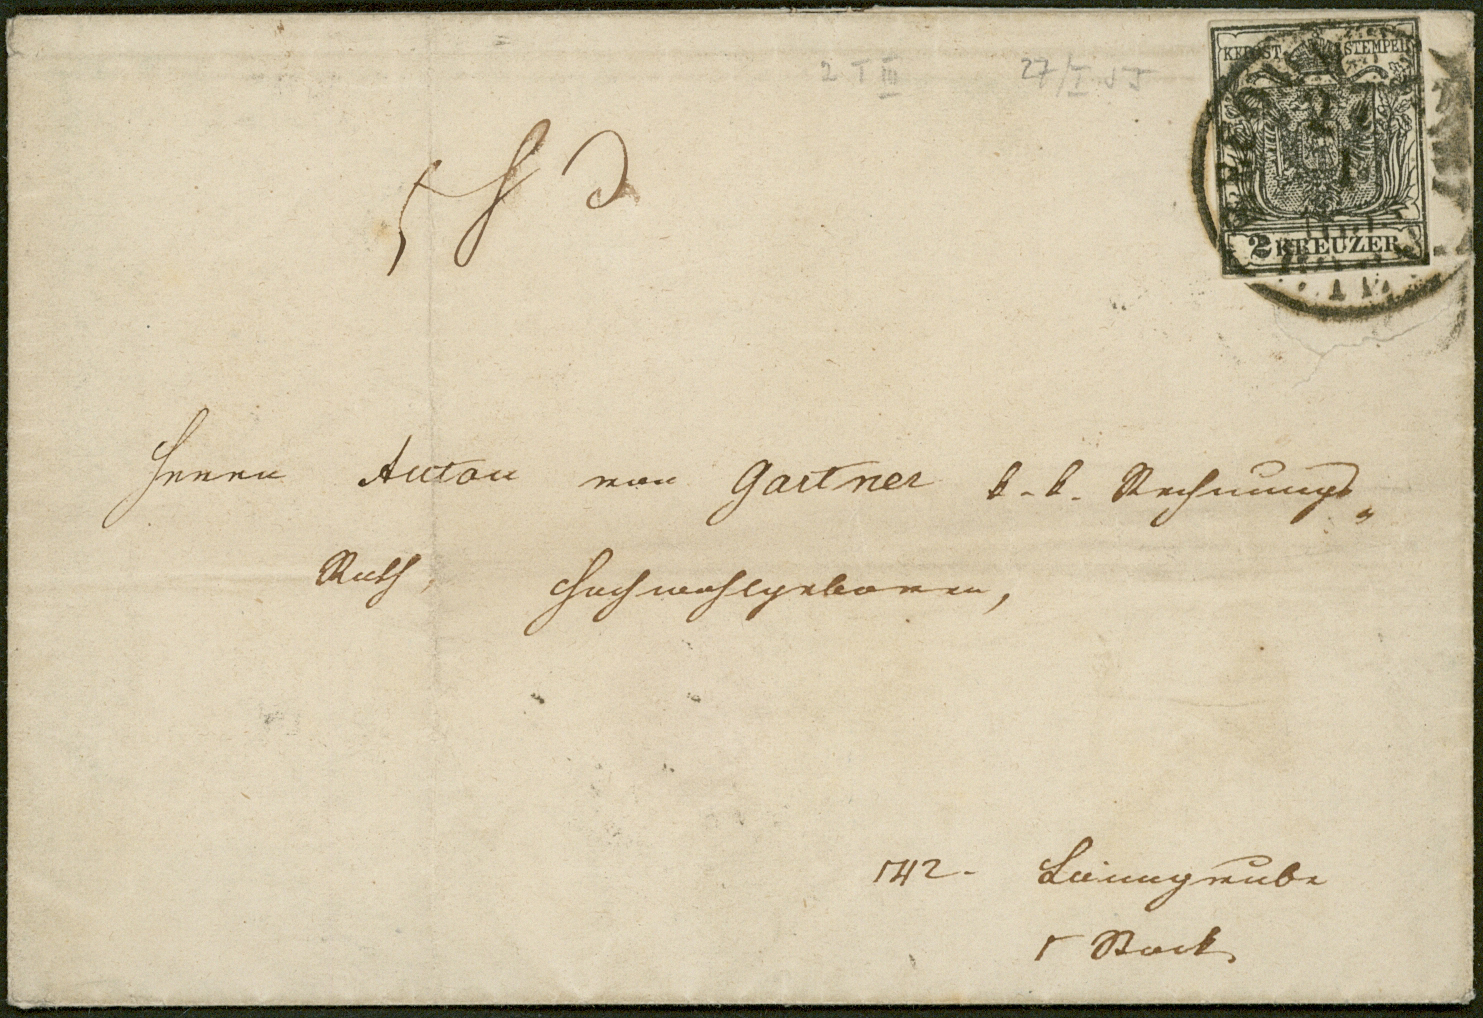 2 T III
27/I
KK POST STEMPEL
2 KREUZER
Herrn Anton von Gartner k. k. Rechnungs„
Rath, Hochwohlgeboren,
142 - Laimgrube
1 Stock.